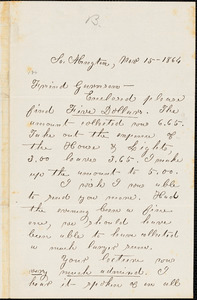 B.
So. Abington, Nov 15 - 1864
Friend Garrison -
Enclosed please
find Five Dollars. The
amount collected was 6.65.
Take out the expense of
the House & Lights,
3.00 leaves 3.65. I make
up the amount to 5.00.
I wish I was able
to send you more. Had
the evening been a fine
one, we should have
been able to have collected
a much larger sum.
Your lecture was
very much admired. I
hear it spoken of in all